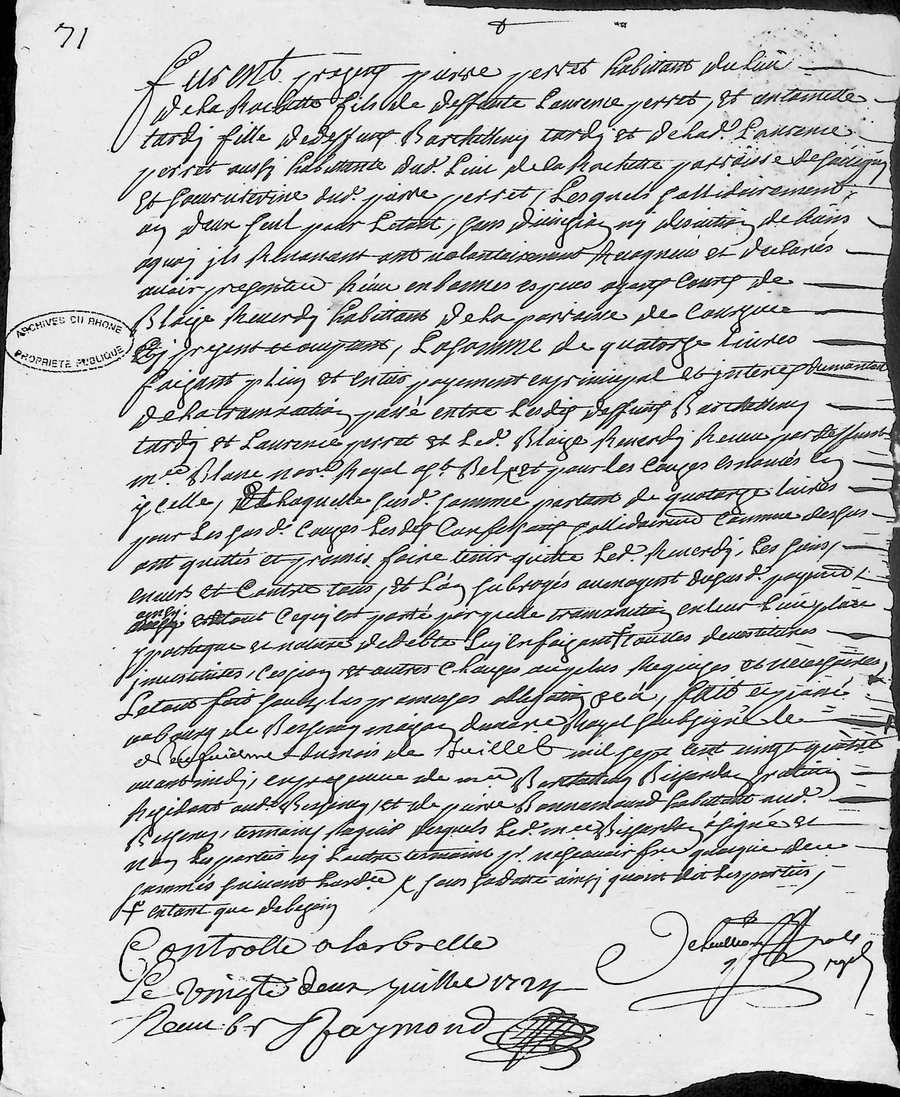 71
furent presens pierre perret habitant du lieu
de la Rochette fils de deffunte Laurence perret, et antoinette
tardy fille de deffunt Barthellemy tardy et de lad. Laurence
perret aussy habittante dud. Lieu de la Rochette parroisse de
et soeur uterine dud. pierre perret, Lesquels sollidairement,
un deux seul pour Letout, sans division ny discution de biens
aquoy ils Renoncent ont volontairement Recogneu et declarés
avoir presentem Receu en bonnes especes ayant Cours de
Blaize Reverdy habittant de la parroisse de Courzieu
icy present acceptant, La somme de quatorze livres
faizant plein et entier payement en principal et interes
de la transaction passé entre Lesdis deffuns Barthellemy
tardy et Laurence perret et Led. Blaize Reverdy Receue par deffunt
me Blanc no.re Royal et pour les Cauzes enoncés en
ycelle, de Laquelle susd. somme portant de quatorze livres
pour Les susd. Cauzes Lesdis Confessans sollidairem Comme dessus
ont quittés et promis faire tenir quitte Led. Reverdy, Les siens,
envers et Contre tous, et L'on subrogés aumoyent du susd. payement
et tout Cequy est porté par quelle transaction en leur Lieu place
ypothique et nature de debte Luy en faizant + touttes devestitures
investitures, Cession, et autres Charges auplus Requizes et necessaires
Letout fait soubs les promesses obligations &ca, fait et passé
au bourg de Bessenay maizon du notaire Royal soubsigné le
du mois de Juillet mil sept cent vingt quatre
avant midy, en presence de me Barthellemy praticien
Rezidant aud. Bessenay, et de pierre Bonnamour habitant aud.
Bessenay, temoins Requis desquels Led. me a signé et
non Les parties ny Lautre temoint p. ne scavoir fre quoique de ce
sommés suivant Lordce
+ entant que de bezoin
Controllé a Larbrelle
Le vingte deux juillet 1724
Raymond